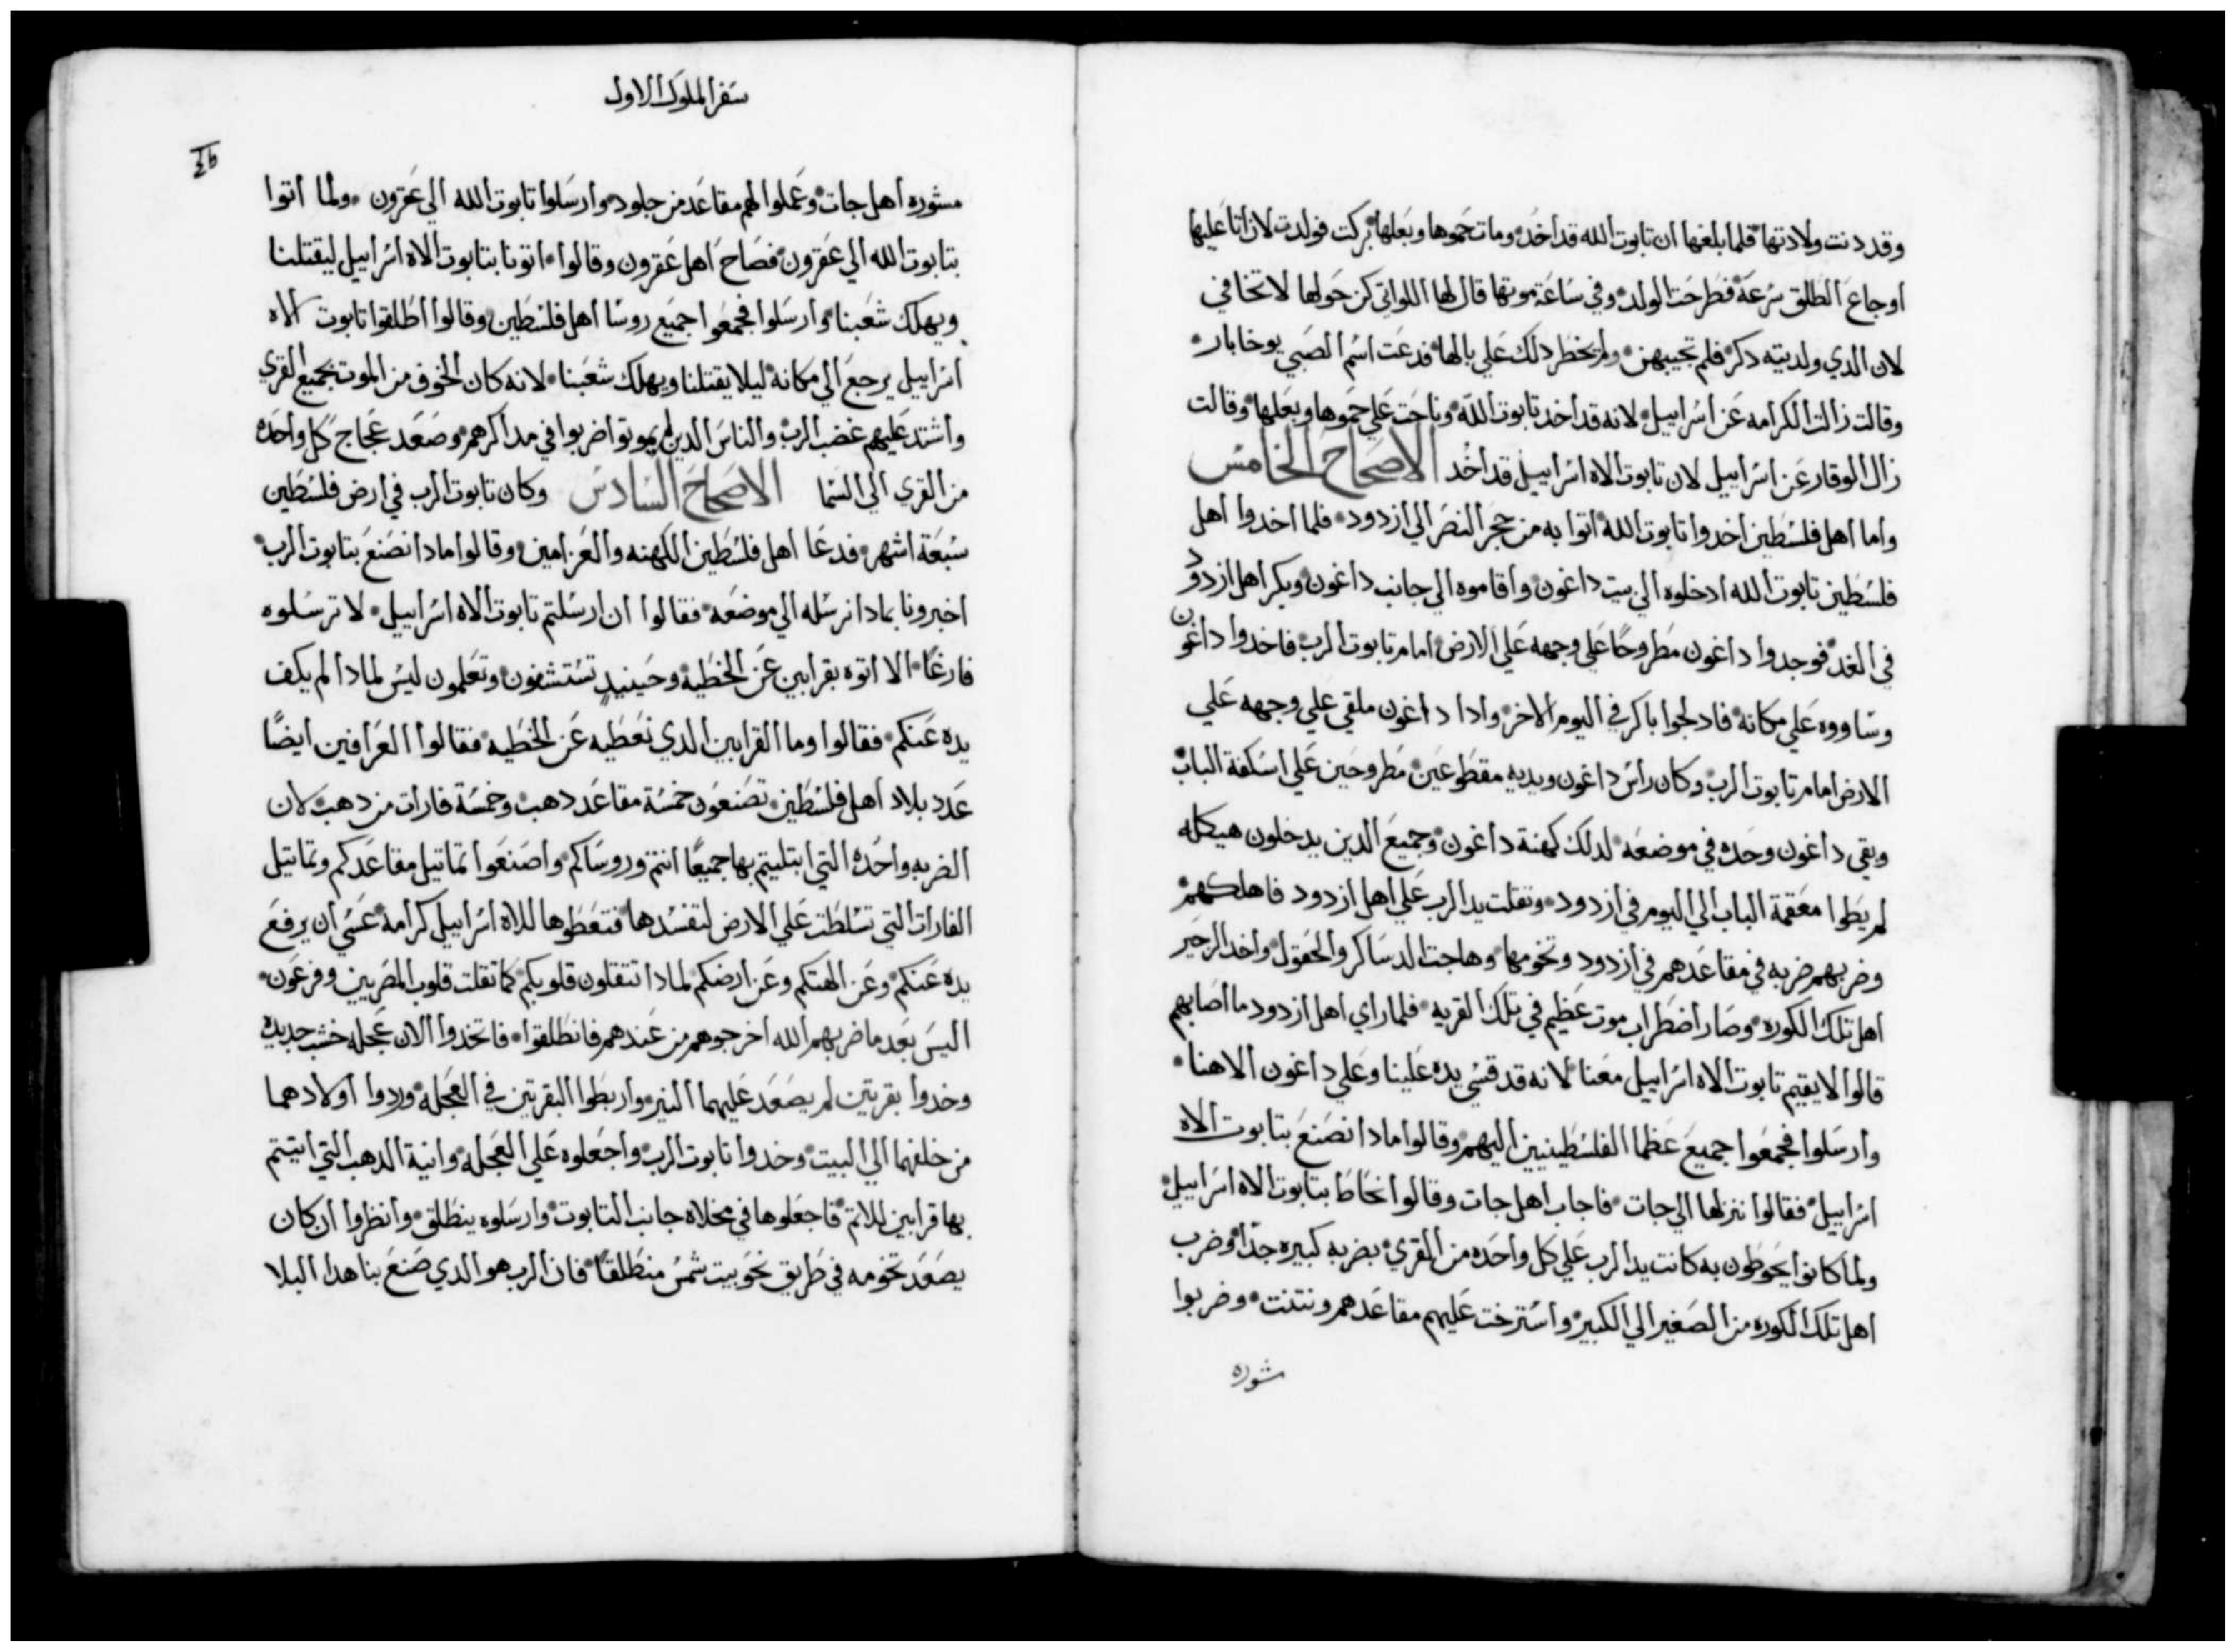 وقد دنت ولادتها فلما بلغها ان تابوت الله قد اخد ومات حموها وبعلها بركت فولدت لان اتا عليها
اوجاع الطلق سرعة فطرحت الولد وفي ساعة موتها قال لها اللواتي كن حولها لا تخافي
لان الدي ولدتيه دكر فلم تجيبهن ولم يخطر دلك علي بالها فدعت اسم الصبي يوخابار
وقالت زالت الكرامه عن اسراييل لانه قد اخد تابوت الله وناحت علي حموها وبعلها وقالت
زال الوقار عن اسراييل لان تابوت الاه اسراييل قد اخد الاصحاح الخامس
واما اهل فلسطين اخدوا تابوت الله اتوا به من حجر النصر الي ازدود فلما اخدوا اهل
فلسطين تابوت الله ادخلوه الي بيت داغون واقاموه الي جانب داغون وبكر اهل ازدود
في الغد فوجدوا داغون مطروحًا علي وجهه علي الارض امام تابوت الرب فاخدوا داغون
وساووه علي مكانه فادلجوا باكر في اليوم الاخر وادا داغون ملقي علي وجهه علي
الارض امام تابوت الرب وكان راس داغون ويديه مقطوعين مطروحين علي اسكفة الباب
وبقي داغون وحده في موضعه لدلك كهنة داغون وجميع الدين يدخلون هيكله
لم يطوا معقمة الباب الي اليوم في ازدود وتقلت يد الرب علي اهل ازدود فاهلكهم
وضربهم ضربه في مقاعدهم في ازدود وتخومها وهاجت الدساكر والحقول واخد الزحير
اهل تلك الكوره وصار اضطراب موت عظيم في تلك القريه فلما راي اهل ازدود ما اصابهم
قالوا لا يقيم تابوت الاه اسراييل معنا لانه قد قسي يده علينا وعلي داغون الاهنا
وارسلوا فجمعوا جميع عظما الفلسطينيين اليهم وقالوا مادا نصنع بتابوت الاه
اسراييل فقالوا ننزلها الي جات فاجاب اهل جات وقالوا نحاط بتابوت الاه اسراييل
ولما كانوا يحوطون به كانت يد الرب علي كل واحده من القري بضربه كبيره جدًا وضرب
اهل تلك الكوره من الصغير الي الكبير واسترخت عليهم مقاعدهم ونتنت وضربوا
مشوره
سفر الملوك الاول
مشوره اهل جات وعملوا لهم مقاعد من جلود وارسلوا تابوت الله الي عقرون ولما اتوا
بتابوت الله الي عقرون فصاح اهل عقرون وقالوا اتونا بتابوت الاه اسراييل ليقتلنا
ويهلك شعبنا وارسلوا فجمعوا جميع روسا اهل فلسطين وقالوا اطلقوا تابوت الاه
اسراييل يرجع الي مكانه ليلا يقتلنا ويهلك شعبنا لانه كان الخوف من الموت بجميع القري
واشتد عليهم غضب الرب والناس الدين لم يموتوا ضربوا في مداكرهم وصعد عجاج كل واحده
من القري الي السما الاصحاح السادس وكان تابوت الرب في ارض فلسطين
سبعة اشهر فدعا اهل فلسطين الكهنه والعزامين وقالوا مادا نصنع بتابوت الرب
اخبرونا بمادا نرسله الي موضعه فقالوا ان ارسلتم تابوت الاه اسراييل لا ترسلوه
فارغًا الا اتوه بقرابين عن الخطية وحينيدٍ تستشفون وتعلمون ليس لمادا لم يكف
يده عنكم فقالوا وما القرابين الدي نعطيه عن الخطيه فقالوا العرافين ايضًا
عدد بلاد اهل فلسطين تصنعون خمسة مقاعد دهب وخمسة فارات من دهب لان
الضربه واحده التي ابتليتم بها جميعًا انتم وروساكم واصنعوا تماتيل مقاعدكم وتماتيل
الفارات التي تسلطت علي الارض لتفسدها فتعطوها للاه اسراييل كرامة عسي ان يرفع
يده عنكم وعن الهتكم وعن ارضكم لمادا تتقلون قلوبكم كما تقلت قلوب المصريين وفرعون
اليس بعد ما ضربهم الله اخرجوهم من عندهم فانطلقوا فاتخدوا الان عجله خشب جديده
وخدوا بقرتين لم يصعد عليهما النير واربطوا البقرتين في العجله وردوا اولادهما
من خلفهما الي البيت وخدوا تابوت الرب واجعلوه علي العجله وانية الدهب التي اتيتم
بها قرابين للاتم فاجعلوها في مخلاه جانب التابوت وارسلوه ينطلق وانظروا ان كان
يصعد تخومه في طريق نحو بيت شمس منطلقًا فان الرب هو الدي صنع بنا هدا البلا